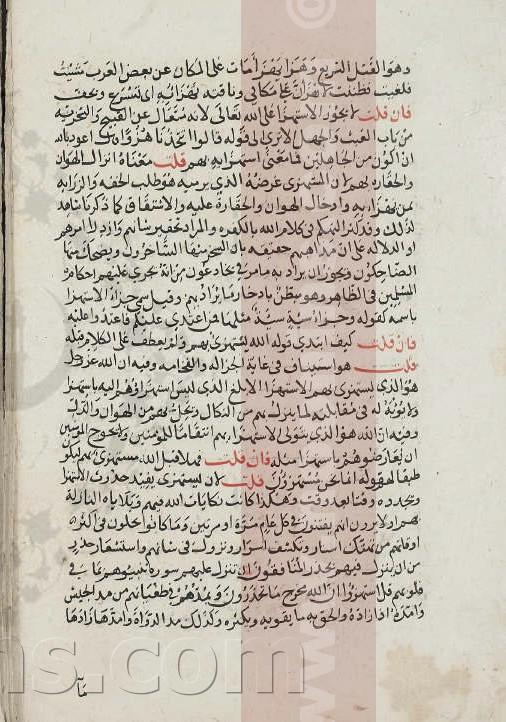 وهو القتل السريع وهزا يهزأ مات على المكان عن بعض العرب مشيت
فلغبت فظننت لاهزأن على مكاني وناقته تهزأ به اي تسرع وتخف
فان قلت لا يجوز الاستهزا على الله تعالى لانه متعال عن القبيح والسخرية
من باب العيب والجهل الا ترى الى قوله قالوا اتتخذنا هزوا قال اعوذ بالله
ان اكون من الجاهلين فما معنى استهزايه بهم قلت معناه انزال الهوان
والحقارة بهم لان المستهزئ غرضه الذي يرميه هو طلب الخفة والزراية
بمن يهزأ به وادخال الهوان والحقارة عليه والاشتقاق كما ذكرنا شاهد
لذلك وقد كثر التهكم في كلام الله بالكفرة والمراد تحقير شانهم وازدرا امرهم
والدلالة على ان مذاهبهم حقيقة بان يسخر منها الساخرون ويضحك منها
الضاحكون ويجوز ان يراد به ما مر في يخادعون من انه يجري عليهم احكام
المسلمين في الظاهر وهو مبطن بادخار ما يراد بهم وقيل سمي جزاء الاستهزا
باسمه كقوله وجزاء سيئة سيئة مثلها فمن اعتدى عليكم فاعتدوا عليه
فان قلت كيف ابتدئ قوله الله يستهزئ بهم ولم يعطف على الكلام قبله
قلت هو استيناف في غاية الجزالة والفخامة وفيه ان الله عز وجل
هو الذي يستهزئ بهم الاستهزا الابلغ الذي ليس استهزاؤهم اليه باستهزا
ولا يؤبه له في مقابلته لما ينزل بهم من النكال ويحل بهم من الهوان والذل
وفيه ان الله هو الذي يتولى الاستهزا بهم انتقاما للمومنين ولا يحوج المومنين
ان يعارضوهم باستهزا مثله فان قلت فهلا قيل الله مستهزئ بهم ليكون
طبقا لقوله انما نحن مستهزؤن قلت لان يستهزئ يفيد حدوث الاستهزا
وتجدده وقتا بعد وقت وهكذا كانت نكايات الله فيهم وبلاياه النازلة
بهم اولا يرون انهم يفتنون في كل عام مرة او مرتين وما كانوا يخلون في اكثر
اوقاتهم من تهتك استار وتكشف اسرار ونزول في شانهم واستشعار حذر
من ان ينزل فيهم يحذر المنافقون ان تنزل عليهم سورة تنبيهم بما في
قلوبهم قل استهزؤا ان الله مخرج ما تحذرون ويمدهم في طغيانهم من مد الجيش
وامده اذا زاده والحق به ما يقويه ويكثره وكذلك مد الدواة وامدها زادها
ما
ns.com